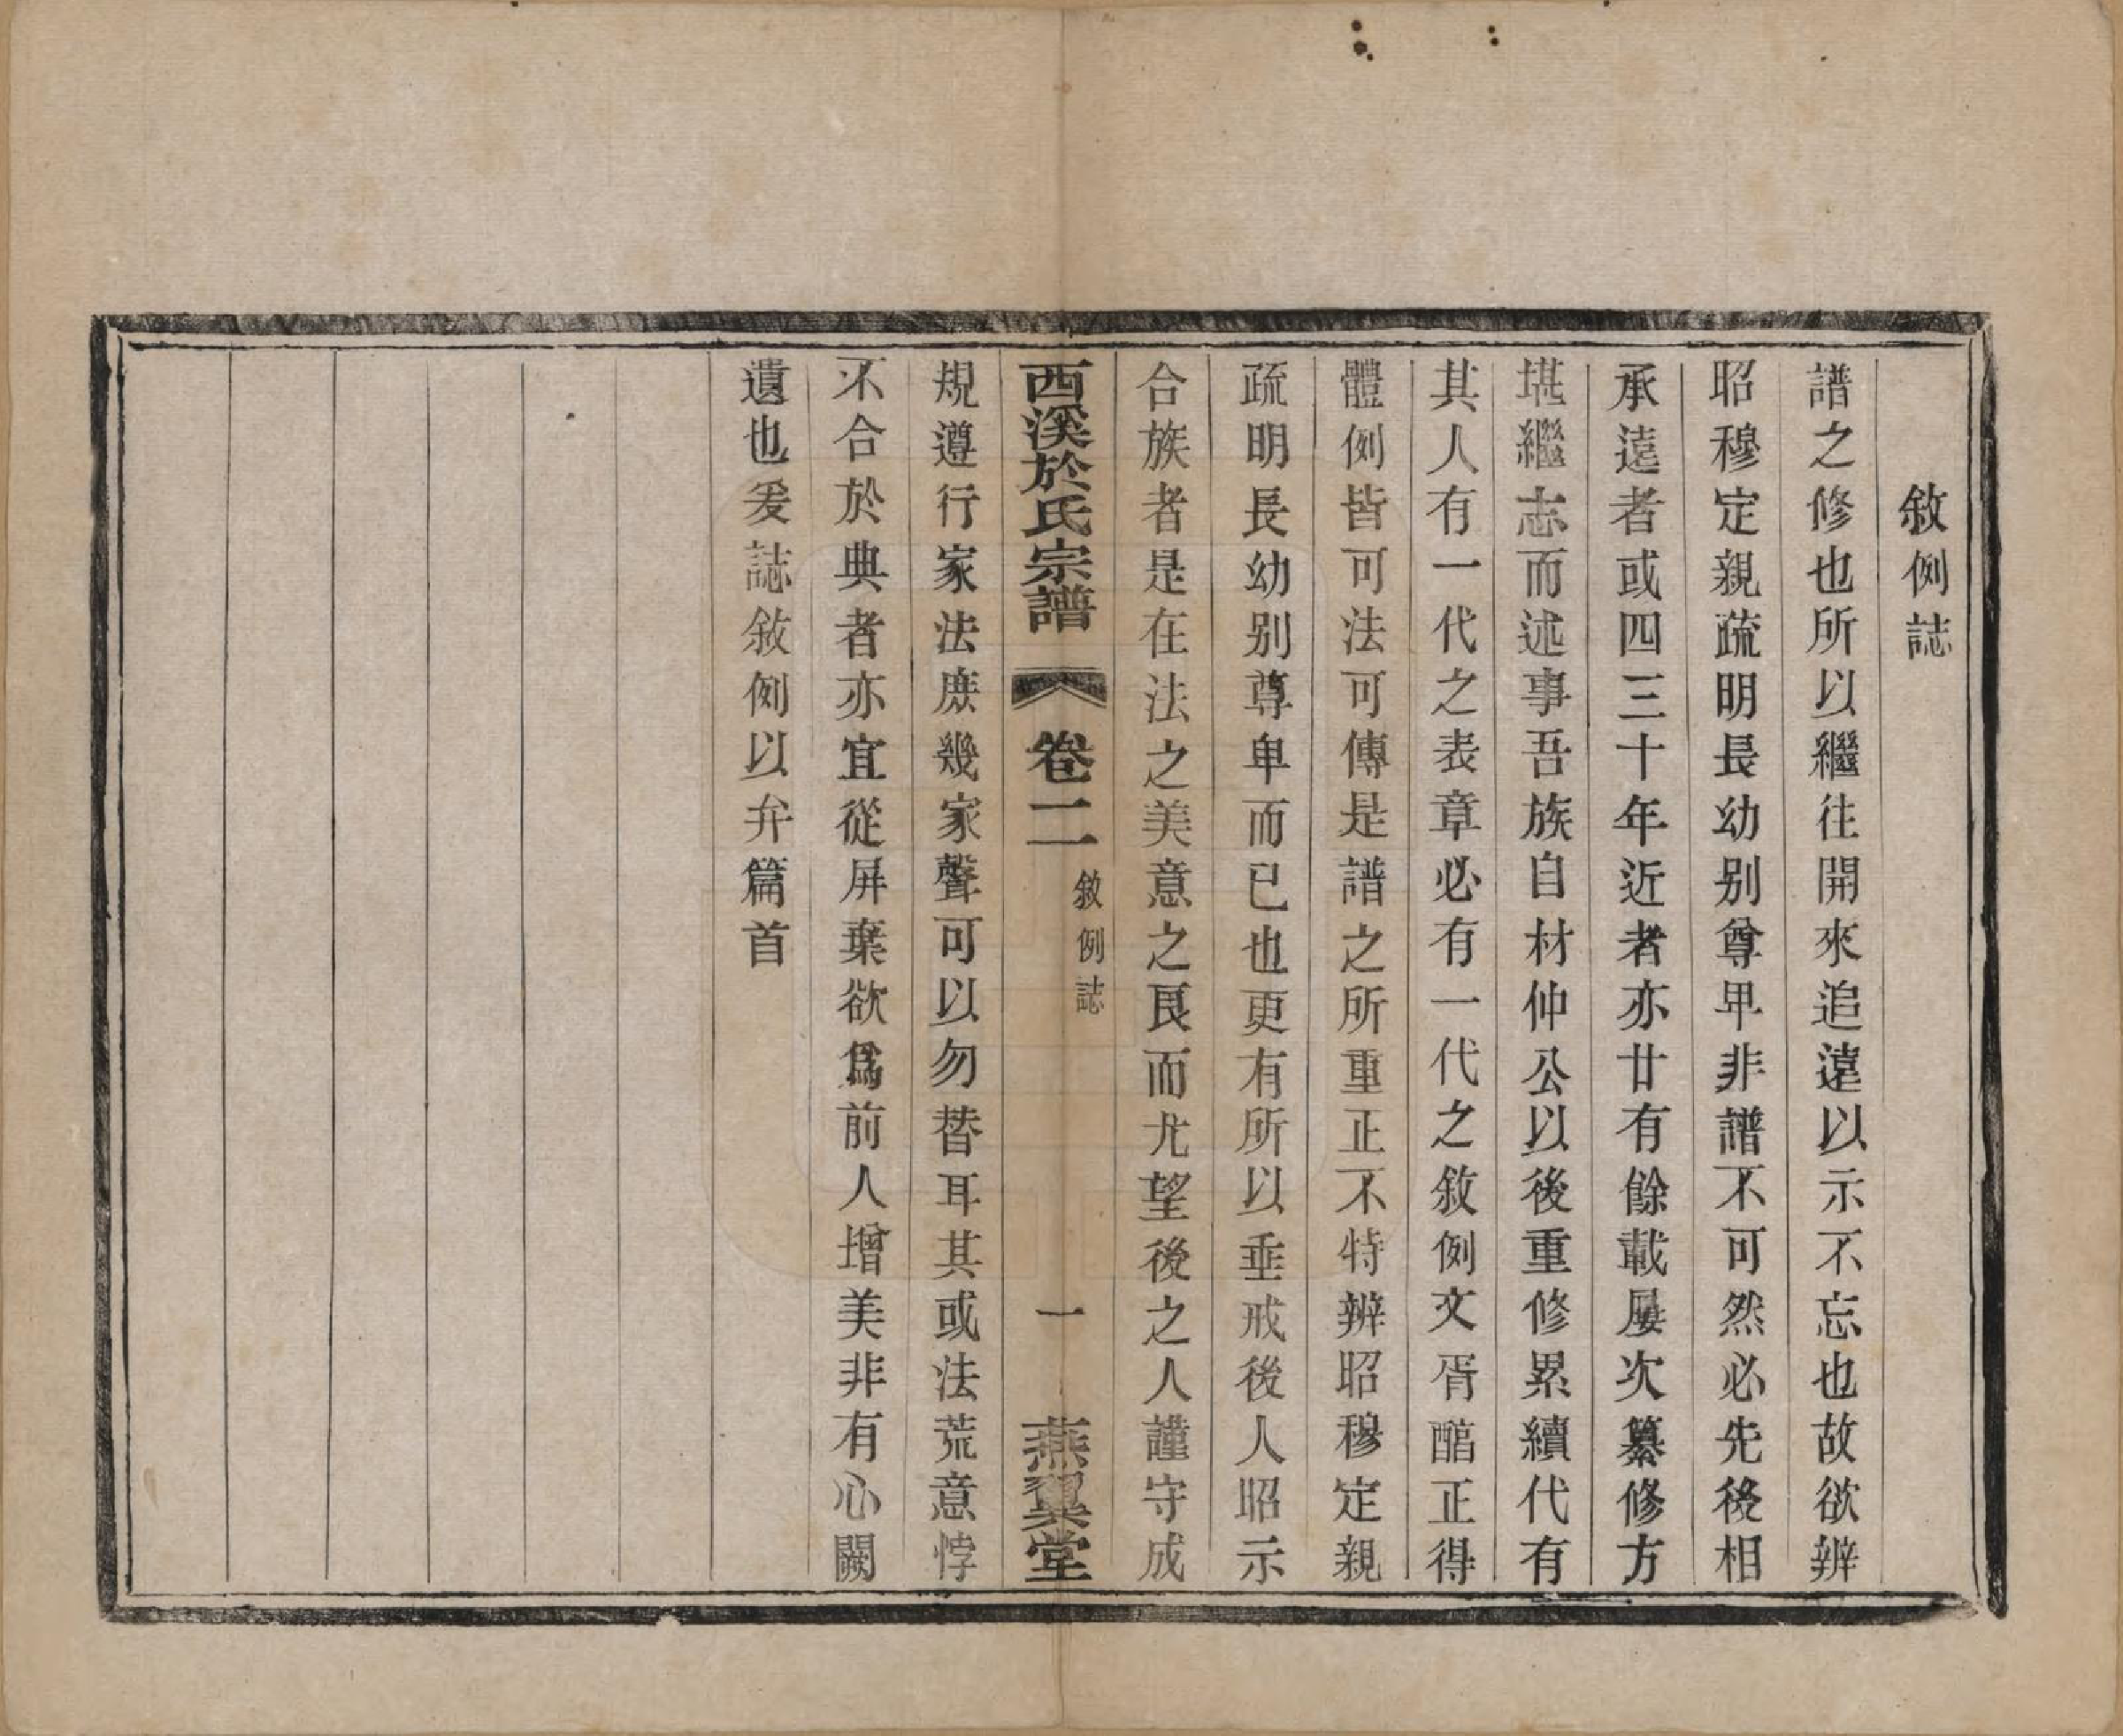 敘例誌
譜之修也所以繼往開來追遠以示不忘也故欲辨
昭穆定親疏明長幼别尊卑非譜不可然必先後相
承遠者或四三十年近者亦廿有餘載屡次纂修方
堪繼志而述事吾族自材仲公以後重修累續代有
其人有一代之表章必有一代之敘例文胥酷正得
體例皆可法可傳是譜之所重正不特辨昭穆定親
疏明長幼别尊卑而已也更有所以垂戒後人昭示
合族者是在法之美意之良而尤望後之人謹守成
西溪於氏宗譜 卷二 敘例誌 一 燕翼堂
規遵行家法庶幾家聲可以勿替耳其或法荒意悖
不合於典者亦宜從屏棄欲爲前人增美非有心闕
遺也爰誌敘例以弁篇首